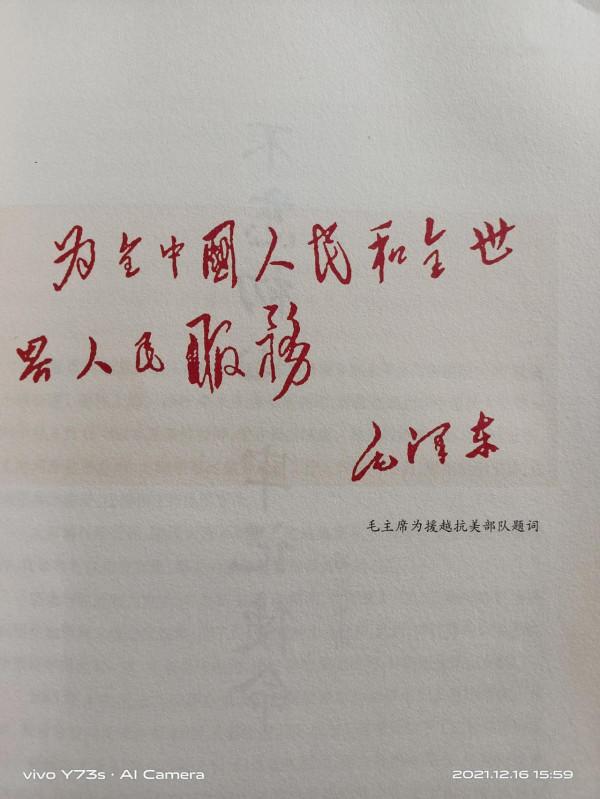 为全中國人民和全世
界人民服務
毛泽东
毛主席为援越抗美部队题词
vivo Y73s · AI Camera
2021.12.16 15:59